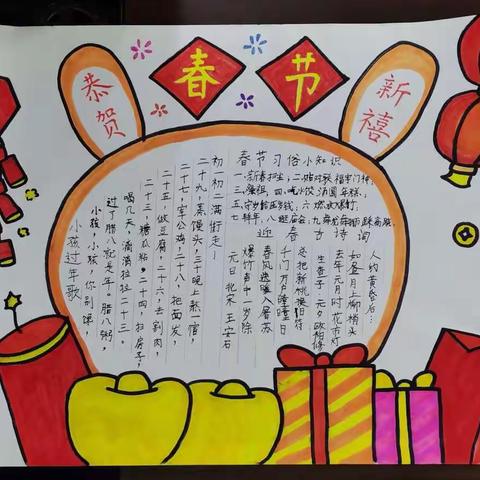 恭贺
春节
新禧
小孩过年歌
小孩,小孩,你别馋,
过了腊八就是年。腊八粥,
喝几天,滴滴拉拉二十三。
二十三,糖瓜粘。二十四,扫房子,
二十五,做豆腐,二十六,去割肉,
二十七,宰公鸡,二十八,把面发,
二十九,蒸馒头,三十晚上熬一宿,
初一初二满街走~
春节习俗小知识
一.新春扫尘;二.贴对联 福字门神;
三.祭祖 四.吃水饺 汤圆 年糕;
五.守岁给压岁钱;六.燃放爆竹;
七.拜年;八.逛庙会;九.舞龙舞狮踩高跷.
迎春古诗词
元日 北宋 王安石
爆竹声中一岁除
春风送暖入屠苏
千门万户曈曈日
总把新桃换旧符
生查子 元夕 欧阳修
去年元月时花市灯
如昼月上柳梢头
人约黄昏后…